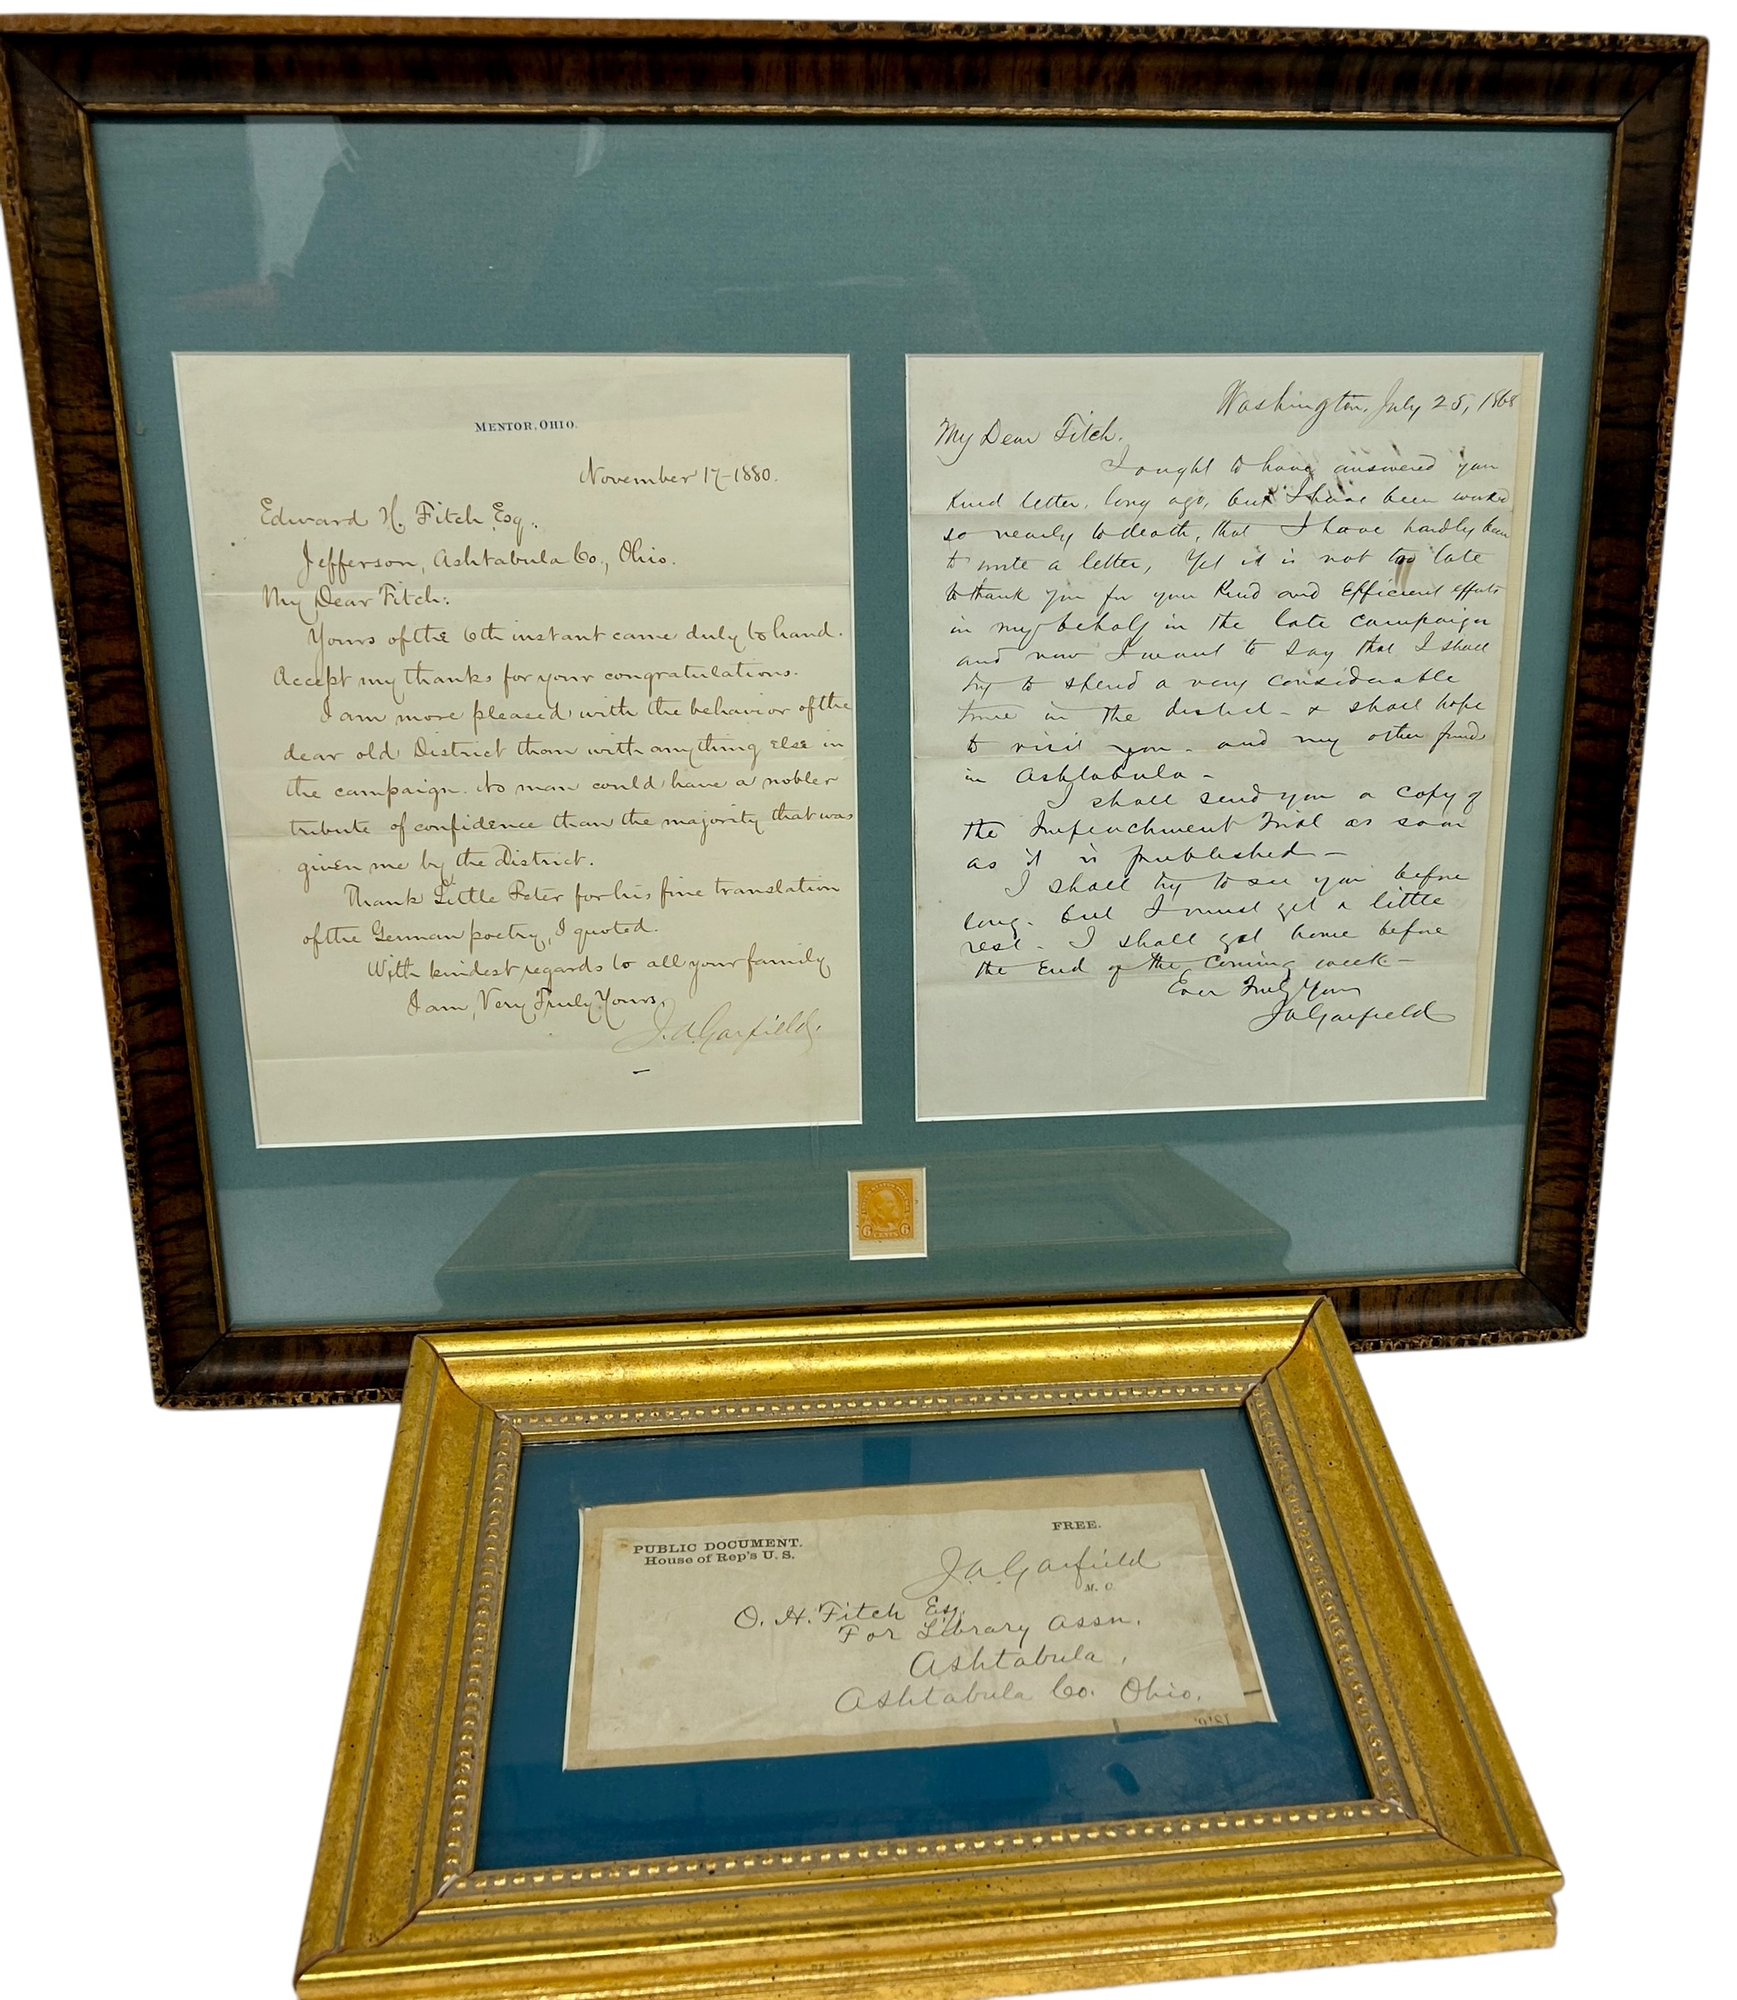 MENTOR, OHIO.
November 17-1880.
Edward H. Fitch Esq.
Jefferson, Ashtabula Co., Ohio.
My Dear Fitch:
Yours of the 6th instant came duly to hand.
Accept my thanks for your congratulations.
I am more pleased with the behavior of the
dear old District than with anything else in
the campaign. No man could have a nobler
tribute of confidence than the majority that was
given me by the District.
Thank Little Peter for his fine translation
of the German poetry, I quoted.
With kindest regards to all your family
I am, Very Truly Yours,
J. A. Garfield.
Washington, July 25, 1868
My Dear Fitch.
I ought to have answered your
kind letter, long ago, but I have been worked
so nearly to death, that I have hardly been
to write a letter, Yet it is not too late
to thank you for your kind and Efficient efforts
in my behalf in the late campaign
and now I want to say that I shall
try to spend a very considerable
time in the district - & shall hope
to visit you - and my other friends
in Ashtabula -
I shall send you a copy of
the Impeachment Trial as soon
as it is published -
I shall try to see you before
long - but I must get a little
rest - I shall get home before
the End of the coming week -
Ever Truly Yours
J A Garfield
UNITED STATES POSTAGE
6 CENTS 6
PUBLIC DOCUMENT.
House of Rep's U. S.
FREE.
J. A. Garfield
M. C.
O. H. Fitch Esq.
For Library Assn.
Ashtabula,
Ashtabula Co. Ohio.